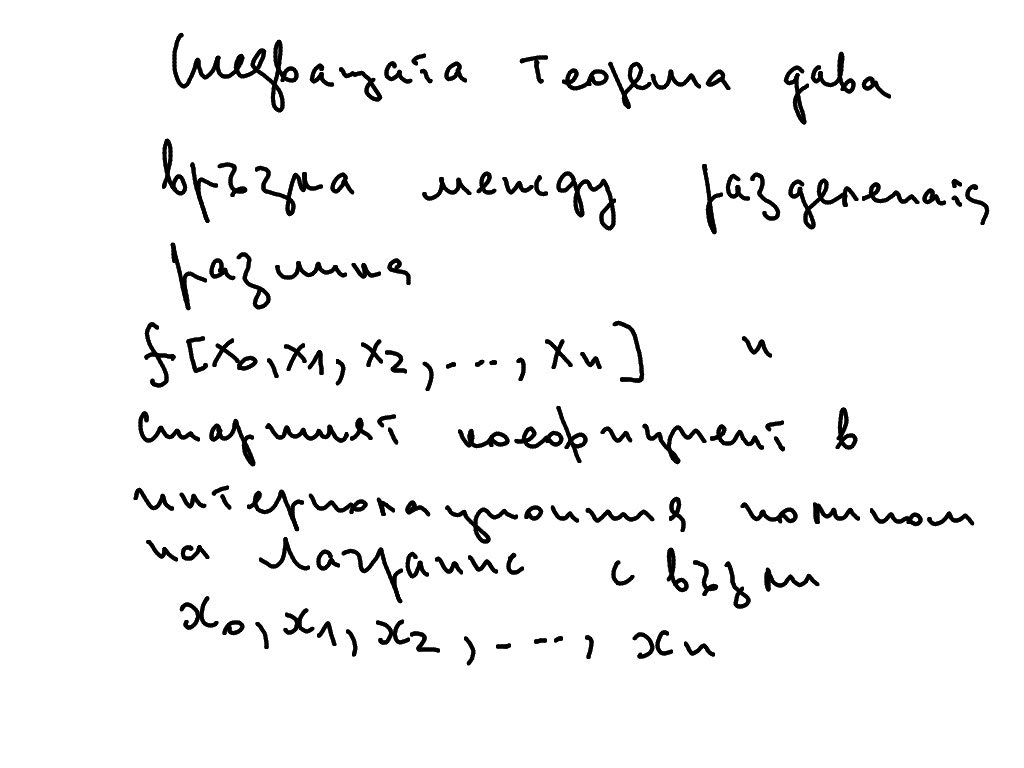 Следващата теорема дава
връзка между разделената
разлика
f[x₀, x₁, x₂, ..., xₙ] и
старшият коефициент в
интерполационния полином
на Лагранж с възли
x₀, x₁, x₂, ..., xₙ